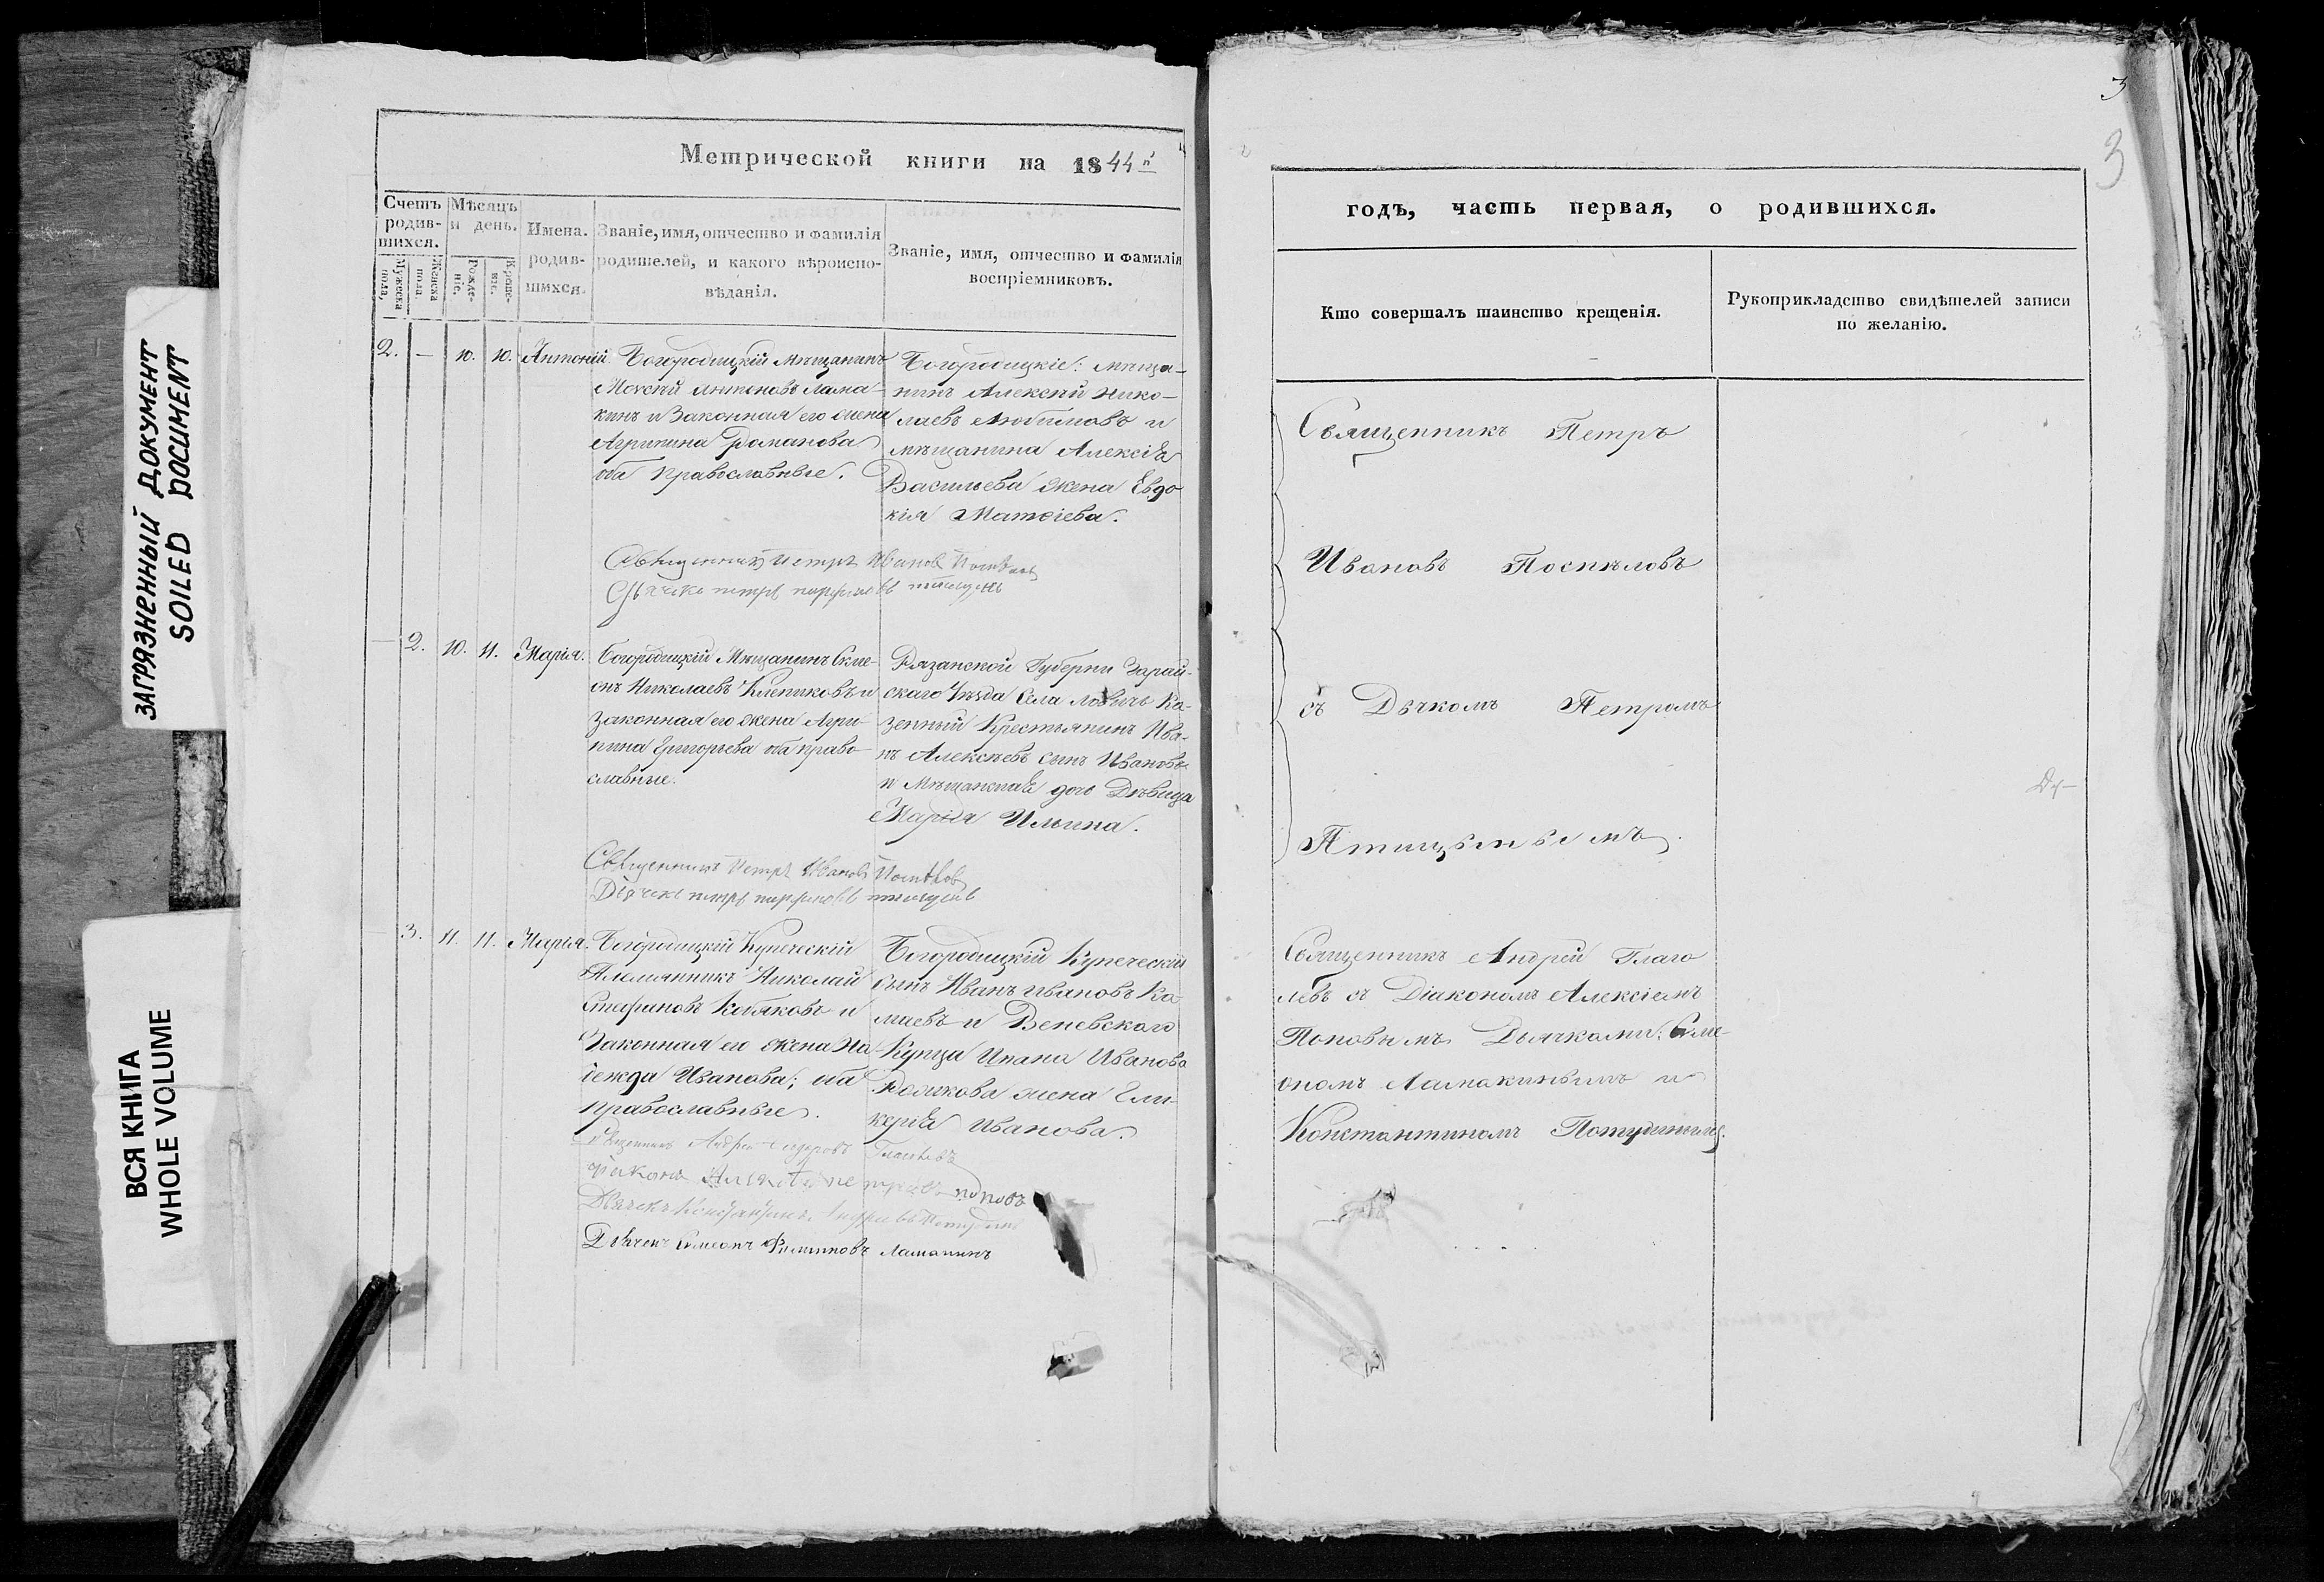 ЗАГРЯЗНЕННЫЙ ДОКУМЕНТ
SOILED DOCUMENT
ВСЯ КНИГА
WHOLE VOLUME
Метрической книги на 1844й
Счетъ родив-шихся.
Мужеска пола,
Женска пола.
Мѣсяцъ и день.
Рожде-ніе.
Креще-ніе.
Имена. родив-шихся.
Званіе, имя, отчество и фамилія
родителей, и какого вѣроиспо-
вѣданія.
Званіе, имя, отчество и фамилія
воспріемниковъ.
2. — 10. 10. Антоній
Богородицкій мѣщанинъ
Антоновъ Лама-
кинъ и Законная его жена
Агрипина Романова
оба Православные.
Богородицкіе: мѣща-
нинъ Алексѣй Нико-
лаевъ Любимовъ и
мѣщанина Алексія
Васильева жена Евдо
кія Матѳіева.
Священникъ Петръ Ивановъ
— 2. 10. 11. Марія.
Богородицкій Мѣщанинъ Симе-
онъ Николаевъ Клепиковъ и
законная его жена Агри-
пина Григорьева оба право-
славные.
Рязанской Губерни Зарай-
скаго Уѣзда Села Ловичъ Ка-
зенный Крестьянинъ Ива-
нъ Алексѣевъ сынъ Ивановъ
и Мѣщанская дочь Дѣвица
Марія Ильина.
Священникъ Петръ Ивановъ
— 3. 11. 11. Марія.
Богородицкій Купеческій
Племянникъ Николай
Стефановъ и
Законная его жена На-
дежда Иванова; оба
православные.
Богородицкій Купеческій
сынъ Иванъ Ивановъ Ко
маевъ и Веневскаго
Купца Ивана Иванова
жена Гли-
керія Иванова.
Священникъ Андрей Глаголевъ
Діаконъ Алексѣй Петровъ Поповъ
Дьячекъ Константинъ
Дьячекъ Симеонъ Ламакинъ
3
3
годъ, часть первая, о родившихся.
Кто совершалъ таинство крещенія.
Рукоприкладство свидѣтелей записи
по желанію.
Священникъ Петръ
Ивановъ Поспѣловъ
съ Дьчкомъ Петромъ
Птицынымъ.
Священникъ Андрей Глаго
левъ съ Діакономъ Алексіемъ
Поповымъ Дьячками: Симе-
ономъ Ламакинымъ и
Константиномъ